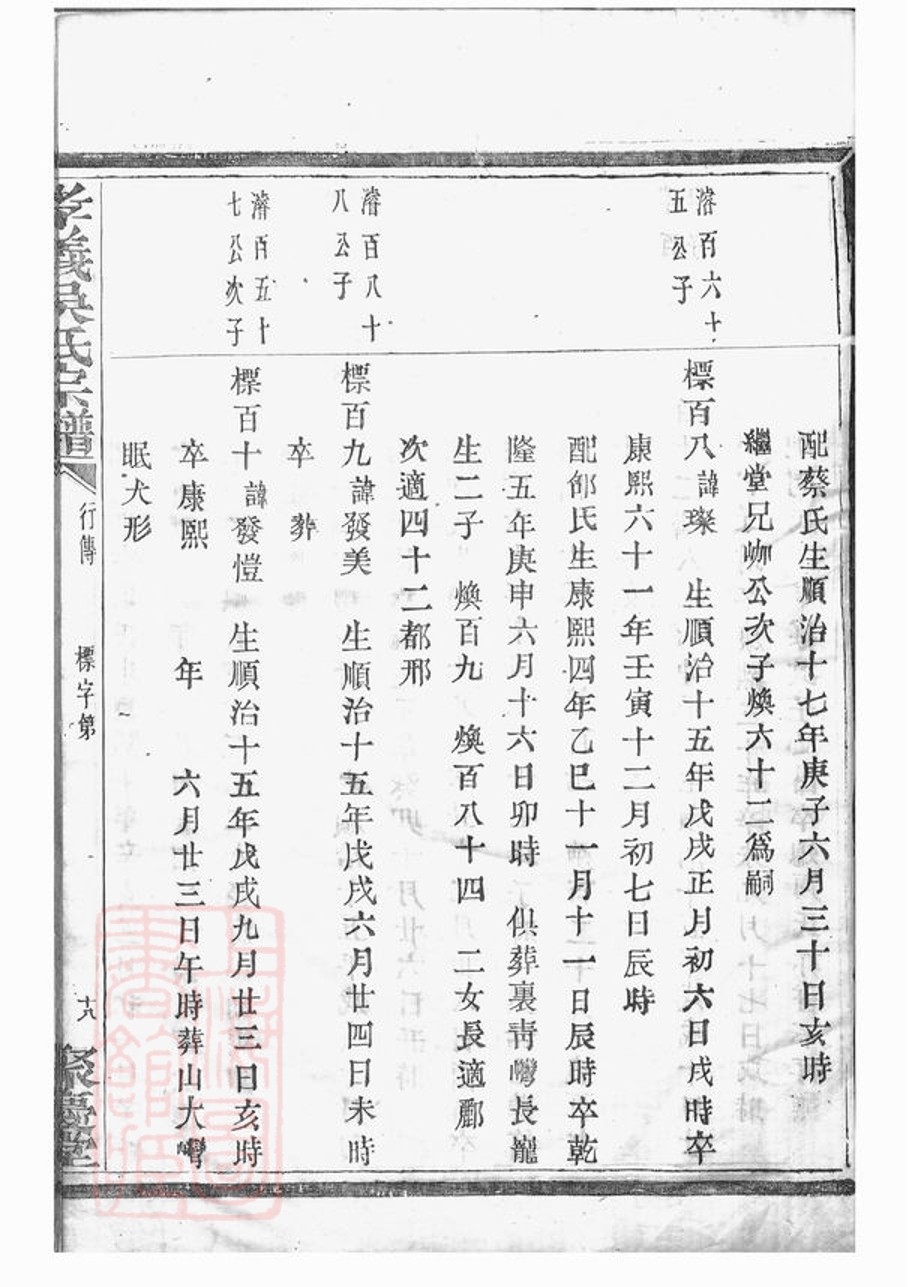 配蔡氏生順治十七年庚子六月三十日亥時
繼堂兄㘰公次子煥六十二爲嗣
濬百六十
五公子
標百八 諱璨 生順治十五年戊戌正月初六日戌時卒
康熙六十一年壬寅十二月初七日辰時
配邹氏生康熙四年乙巳十一月十一日辰時卒乾
隆五年庚申六月十六日卯時 俱葬裏靑灣長龍
生二子 煥百九 煥百八十四 二女長適酈
次適四十二都邢
濬百八十
八公子
標百九 諱發美 生順治十五年戊戌六月廿四日未時
卒 葬
濬百五十
七公次子
標百十 諱發愷 生順治十五年戊戌九月廿三日亥時
卒康熙 年 六月廿三日午時葬山大灣
眠犬形
孝義吳氏宗譜 行傳 標字第 十八 聚慶堂